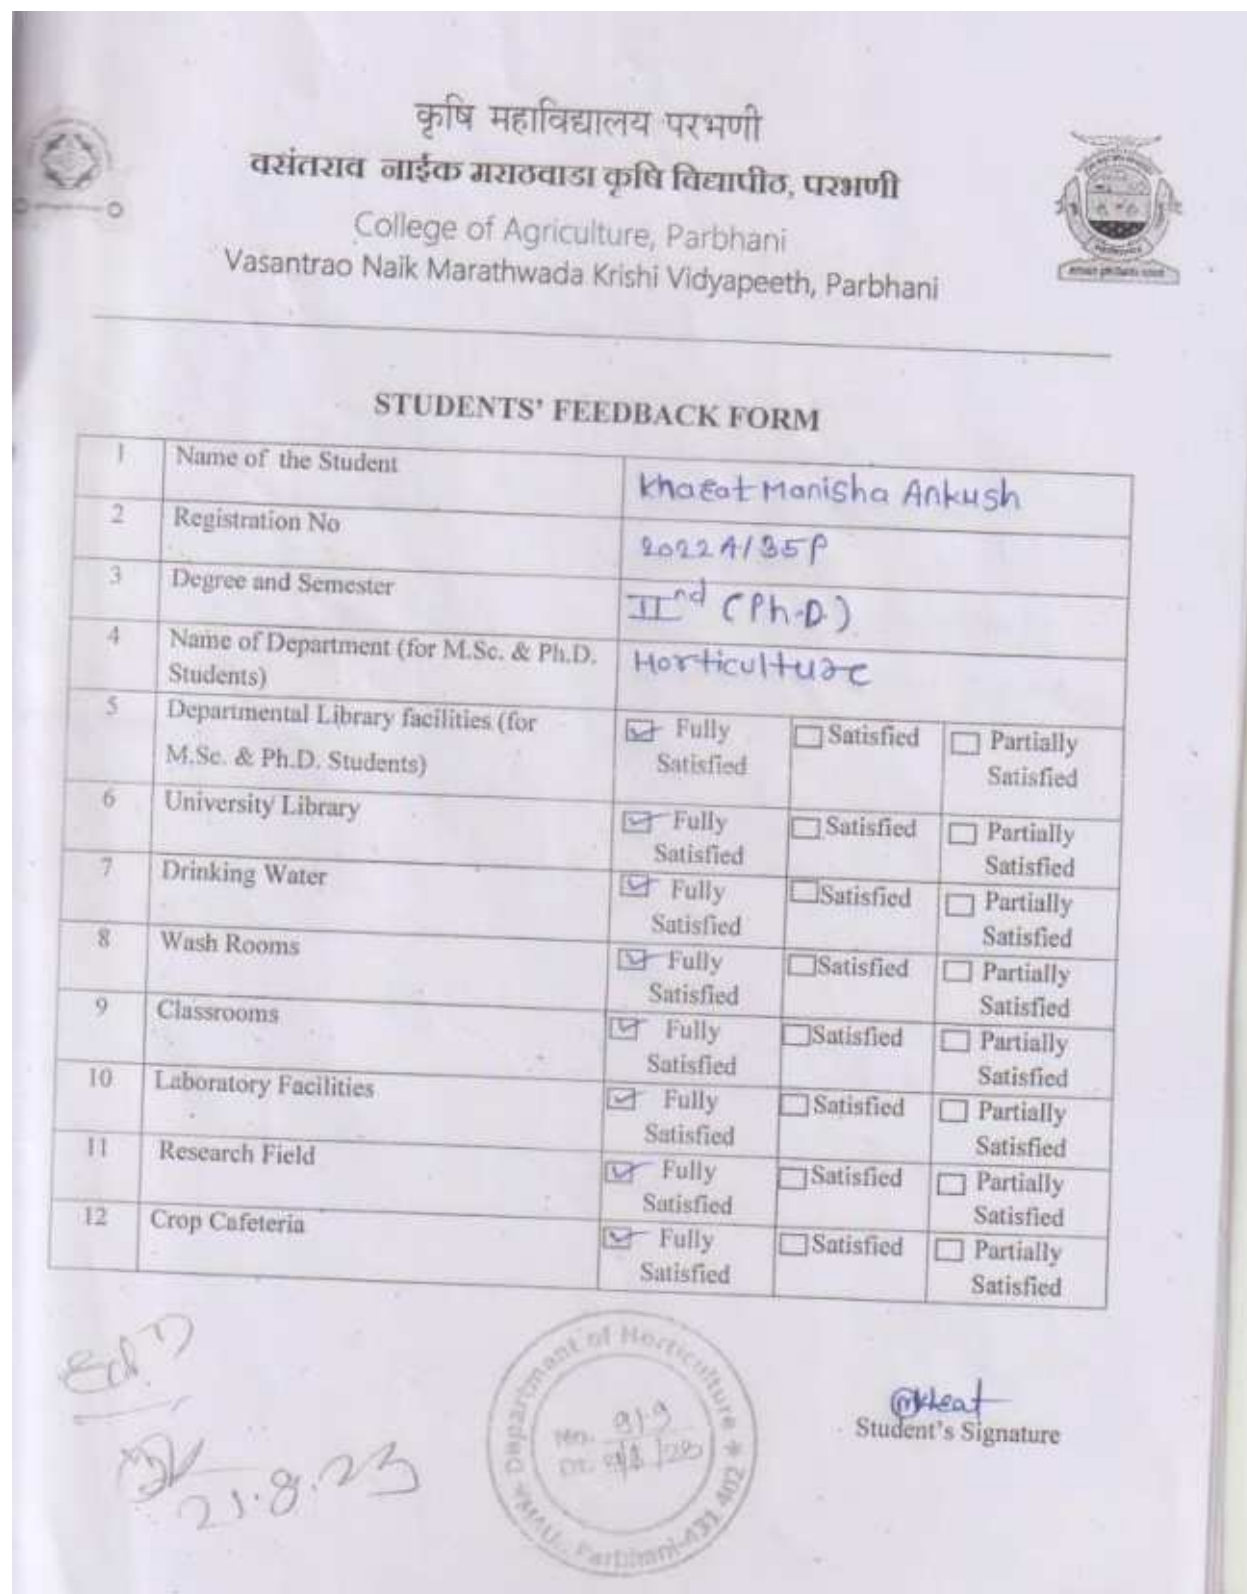 कृषि महाविद्यालय परभणी
वसंतराव नाईक मराठवाडा कृषि विद्यापीठ, परभणी
College of Agriculture, Parbhani
Vasantrao Naik Marathwada Krishi Vidyapeeth, Parbhani
STUDENTS' FEEDBACK FORM
1 Name of the Student Kharat Manisha Ankush
2 Registration No 2022A/35P
3 Degree and Semester IInd (Ph.D.)
4 Name of Department (for M.Sc. & Ph.D. Students) Horticulture
5 Departmental Library facilities (for M.Sc. & Ph.D. Students) Fully Satisfied Satisfied Partially Satisfied
6 University Library Fully Satisfied Satisfied Partially Satisfied
7 Drinking Water Fully Satisfied Satisfied Partially Satisfied
8 Wash Rooms Fully Satisfied Satisfied Partially Satisfied
9 Classrooms Fully Satisfied Satisfied Partially Satisfied
10 Laboratory Facilities Fully Satisfied Satisfied Partially Satisfied
11 Research Field Fully Satisfied Satisfied Partially Satisfied
12 Crop Cafeteria Fully Satisfied Satisfied Partially Satisfied
21.8.23
Department of Horticulture
No.
Dt.
Parbhani-431 402
Student's Signature